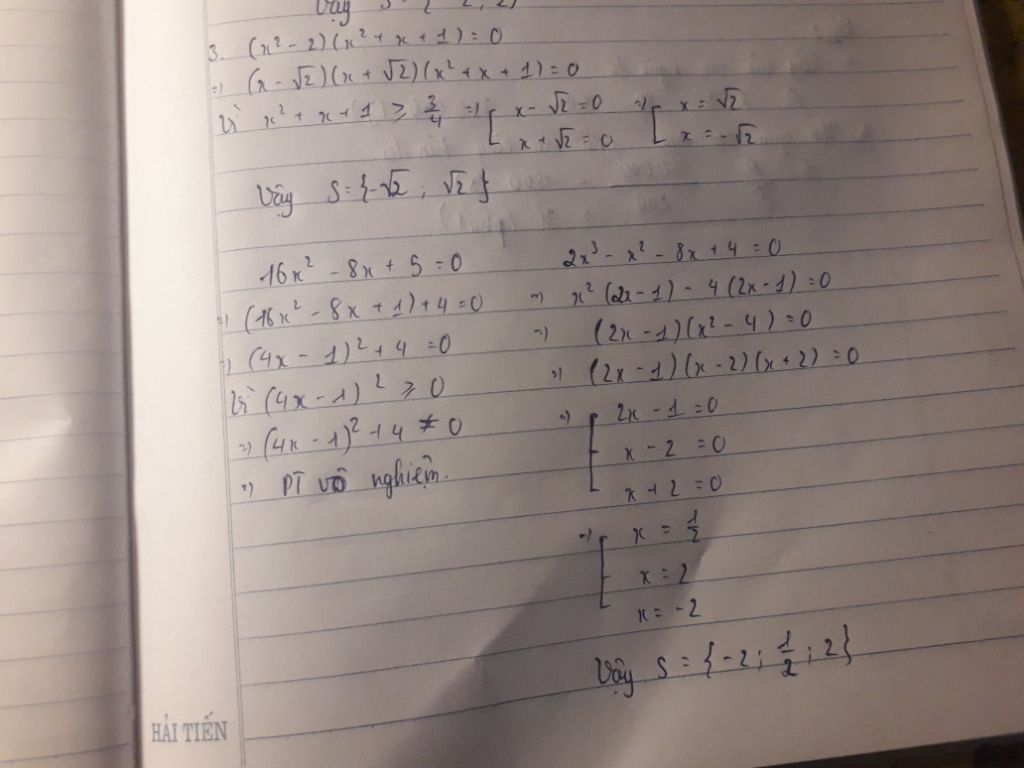 Vậy S = {
3. (x² - 2)(x² + x + 1) = 0
=) (x - √2)(x + √2)(x² + x + 1) = 0
Vì x² + x + 1 ≥ 3/4 =) [ x - √2 = 0 =) [ x = √2
x + √2 = 0 x = -√2
Vậy S = {-√2 ; √2 }
16x² - 8x + 5 = 0
=) (16x² - 8x + 1) + 4 = 0
=) (4x - 1)² + 4 = 0
Vì (4x - 1)² ≥ 0
=) (4x - 1)² + 4 ≠ 0
=) PT vô nghiệm.
2x³ - x² - 8x + 4 = 0
=) x² (2x - 1) - 4 (2x - 1) = 0
=) (2x - 1)(x² - 4) = 0
=) (2x - 1)(x - 2)(x + 2) = 0
=) [ 2x - 1 = 0
x - 2 = 0
x + 2 = 0
=) [ x = 1/2
x = 2
x = -2
Vậy S = {-2 ; 1/2 ; 2}
HẢI TIẾN